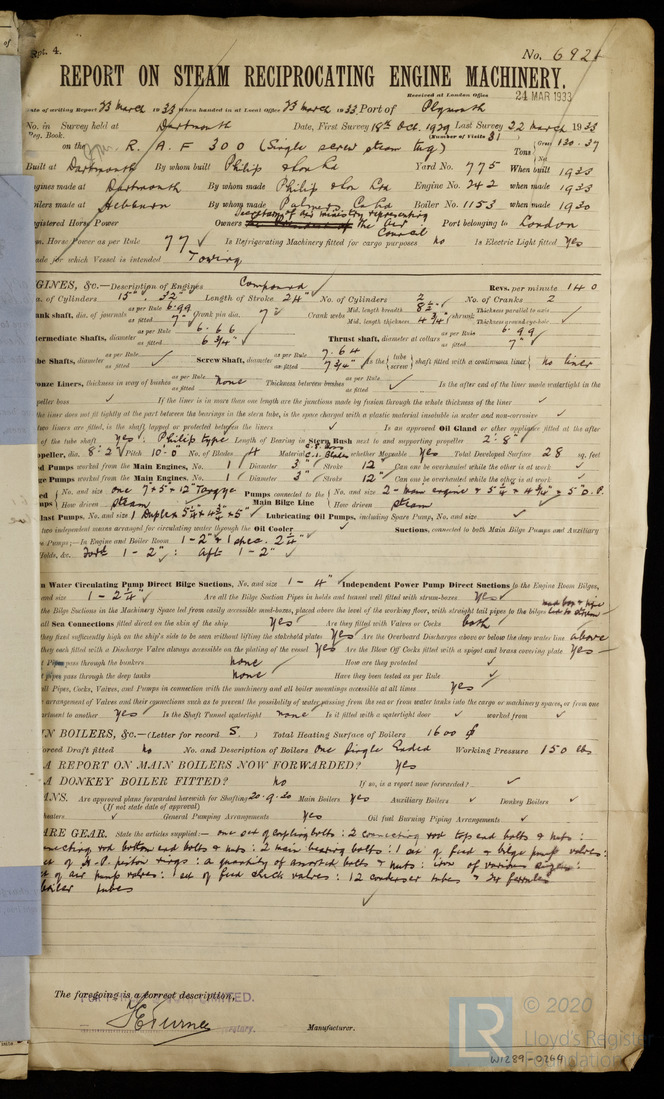 of
Rpt. 4.
No. 692
REPORT ON STEAM RECIPROCATING ENGINE MACHINERY.
Received at London Office 24 MAR 1933
Date of writing Report 23 March 1933 When handed in at Local Office 23 March 1933 Port of Plymouth
No. in Survey held at Dartmouth Date, First Survey 18th Oct. 1929 Last Survey 22 March 1933
Reg. Book. (Number of Visits 31)
on the R. A. F 300 (Single screw steam tug) Tons Gross 130.37 Net
Built at Dartmouth By whom built Philip & Son Ltd Yard No. 775 When built 1933
Engines made at Dartmouth By whom made Philip & Son Ltd Engine No. 242 when made 1933
Boilers made at Hebburn By whom made Palmers Co Ltd Boiler No. 1153 when made 1930
Registered Horse Power Owners Secretary of Air Ministry representing the Air Council Port belonging to London
Nom. Horse Power as per Rule 77 Is Refrigerating Machinery fitted for cargo purposes no Is Electric Light fitted Yes
Trade for which Vessel is intended Towing
ENGINES, &c.—Description of Engines Compound Revs. per minute 140
Dia. of Cylinders 15". 32" Length of Stroke 24" No. of Cylinders 2 No. of Cranks 2
Crank shaft, dia. of journals as per Rule 6.99 as fitted 7" Crank pin dia. 7" Crank webs Mid. length breadth 8½" Mid. length thickness 4¾" shrunk Thickness parallel to axis Thickness around eye-hole
Intermediate Shafts, diameter as per Rule 6.66 as fitted 6¾" Thrust shaft, diameter at collars as per Rule 6.99 as fitted 7"
Tube Shafts, diameter as per Rule as fitted Screw Shaft, diameter as per Rule 7.64 as fitted 7¾" Is the tube screw shaft fitted with a continuous liner no liner
Bronze Liners, thickness in way of bushes as per Rule as fitted None Thickness between bushes as per Rule as fitted Is the after end of the liner made watertight in the
propeller boss If the liner is in more than one length are the joints made by fusion through the whole thickness of the liner
If the liner does not fit tightly at the part between the bearings in the stern tube, is the space charged with a plastic material insoluble in water and non-corrosive
If two liners are fitted, is the shaft lapped or protected between the liners Is an approved Oil Gland or other appliance fitted at the after
end of the tube shaft Yes: Philip type Length of Bearing in Stern Bush next to and supporting propeller 2'.8"
Propeller, dia. 8'.2" Pitch 10'.0" No. of Blades 4 Material C.I. Boss C.I. Blades whether Moveable Yes Total Developed Surface 28 sq. feet
Feed Pumps worked from the Main Engines, No. 1 Diameter 3" Stroke 12" Can one be overhauled while the other is at work
Bilge Pumps worked from the Main Engines, No. 1 Diameter 3" Stroke 12" Can one be overhauled while the other is at work
Feed Pumps No. and size one 7 × 5 × 12" How driven Steam Pumps connected to the Main Bilge Line No. and size 2 - main engine & 5¼ × 4¾ × 5" D.P. How driven Steam
Ballast Pumps, No. and size 1 Duplex 5¼ × 4¾ × 5" Lubricating Oil Pumps, including Spare Pump, No. and size
Are two independent means arranged for circulating water through the Oil Cooler Suctions, connected to both Main Bilge Pumps and Auxiliary
Bilge Pumps;—In Engine and Boiler Room 1 - 2" & 1 spec. 2¼"
In Holds, &c. Ford 1 - 2": aft 1 - 2"
Main Water Circulating Pump Direct Bilge Suctions, No. and size 1 - 4" Independent Power Pump Direct Suctions to the Engine Room Bilges,
No. and size 1 - 2¼" Are all the Bilge Suction Pipes in holds and tunnel well fitted with strum-boxes Yes
Are the Bilge Suctions in the Machinery Space led from easily accessible mud-boxes, placed above the level of the working floor, with straight tail pipes to the bilges
Are all Sea Connections fitted direct on the skin of the ship Yes Are they fitted with Valves or Cocks both
Are they fixed sufficiently high on the ship's side to be seen without lifting the stokehold plates Yes Are the Overboard Discharges above or below the deep water line above
Are they each fitted with a Discharge Valve always accessible on the plating of the vessel Yes Are the Blow Off Cocks fitted with a spigot and brass covering plate Yes
What Pipes pass through the bunkers none How are they protected
What pipes pass through the deep tanks none Have they been tested as per Rule
Are all Pipes, Cocks, Valves, and Pumps in connection with the machinery and all boiler mountings accessible at all times Yes
Is the arrangement of Valves and their connections such as to prevent the possibility of water passing from the sea or from water tanks into the cargo or machinery spaces, or from one
compartment to another Yes Is the Shaft Tunnel watertight none Is it fitted with a watertight door worked from
MAIN BOILERS, &c.—(Letter for record S.) Total Heating Surface of Boilers 1600
Is Forced Draft fitted no No. and Description of Boilers One Single Ended Working Pressure 150 lbs
IS A REPORT ON MAIN BOILERS NOW FORWARDED? Yes
IS A DONKEY BOILER FITTED? no If so, is a report now forwarded?
PLANS. Are approved plans forwarded herewith for Shafting 20.9.30 Main Boilers Yes Auxiliary Boilers Donkey Boilers
(If not state date of approval)
Superheaters General Pumping Arrangements Yes Oil fuel Burning Piping Arrangements
SPARE GEAR. State the articles supplied:— one set of coupling bolts: 2 connecting rod top end bolts & nuts:
connecting rod bottom end bolts & nuts: 2 main bearing bolts: 1 set of feed & bilge pump valves:
set of H.P. piston rings: a quantity of assorted bolts & nuts: iron of various sizes:
set of air pump valves: 1 set of feed check valves: 12 condenser tubes & 24 ferrules
boiler tubes
The foregoing is a correct description,
LIMITED.
Secretary. Manufacturer.
LR © 2020
Lloyd's Register
Foundation
W1289-0264